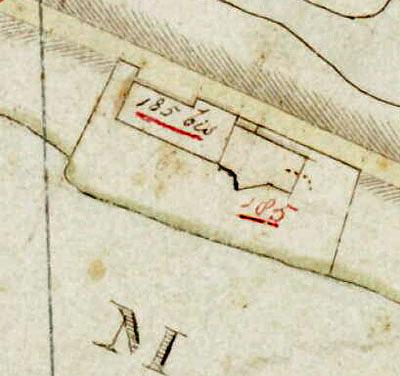 185 bis
185
M